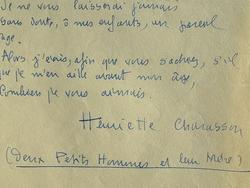 Je ne vous laisserai jamais
sans doute, ô mes enfants, un pareil
age.
Alors j'écris, afin que vous sachiez, s'il
que je m'en aille avant mon âge,
Combien je vous aimais.
Henriette Charasson
(Deux Petits Hommes et leur Mère)